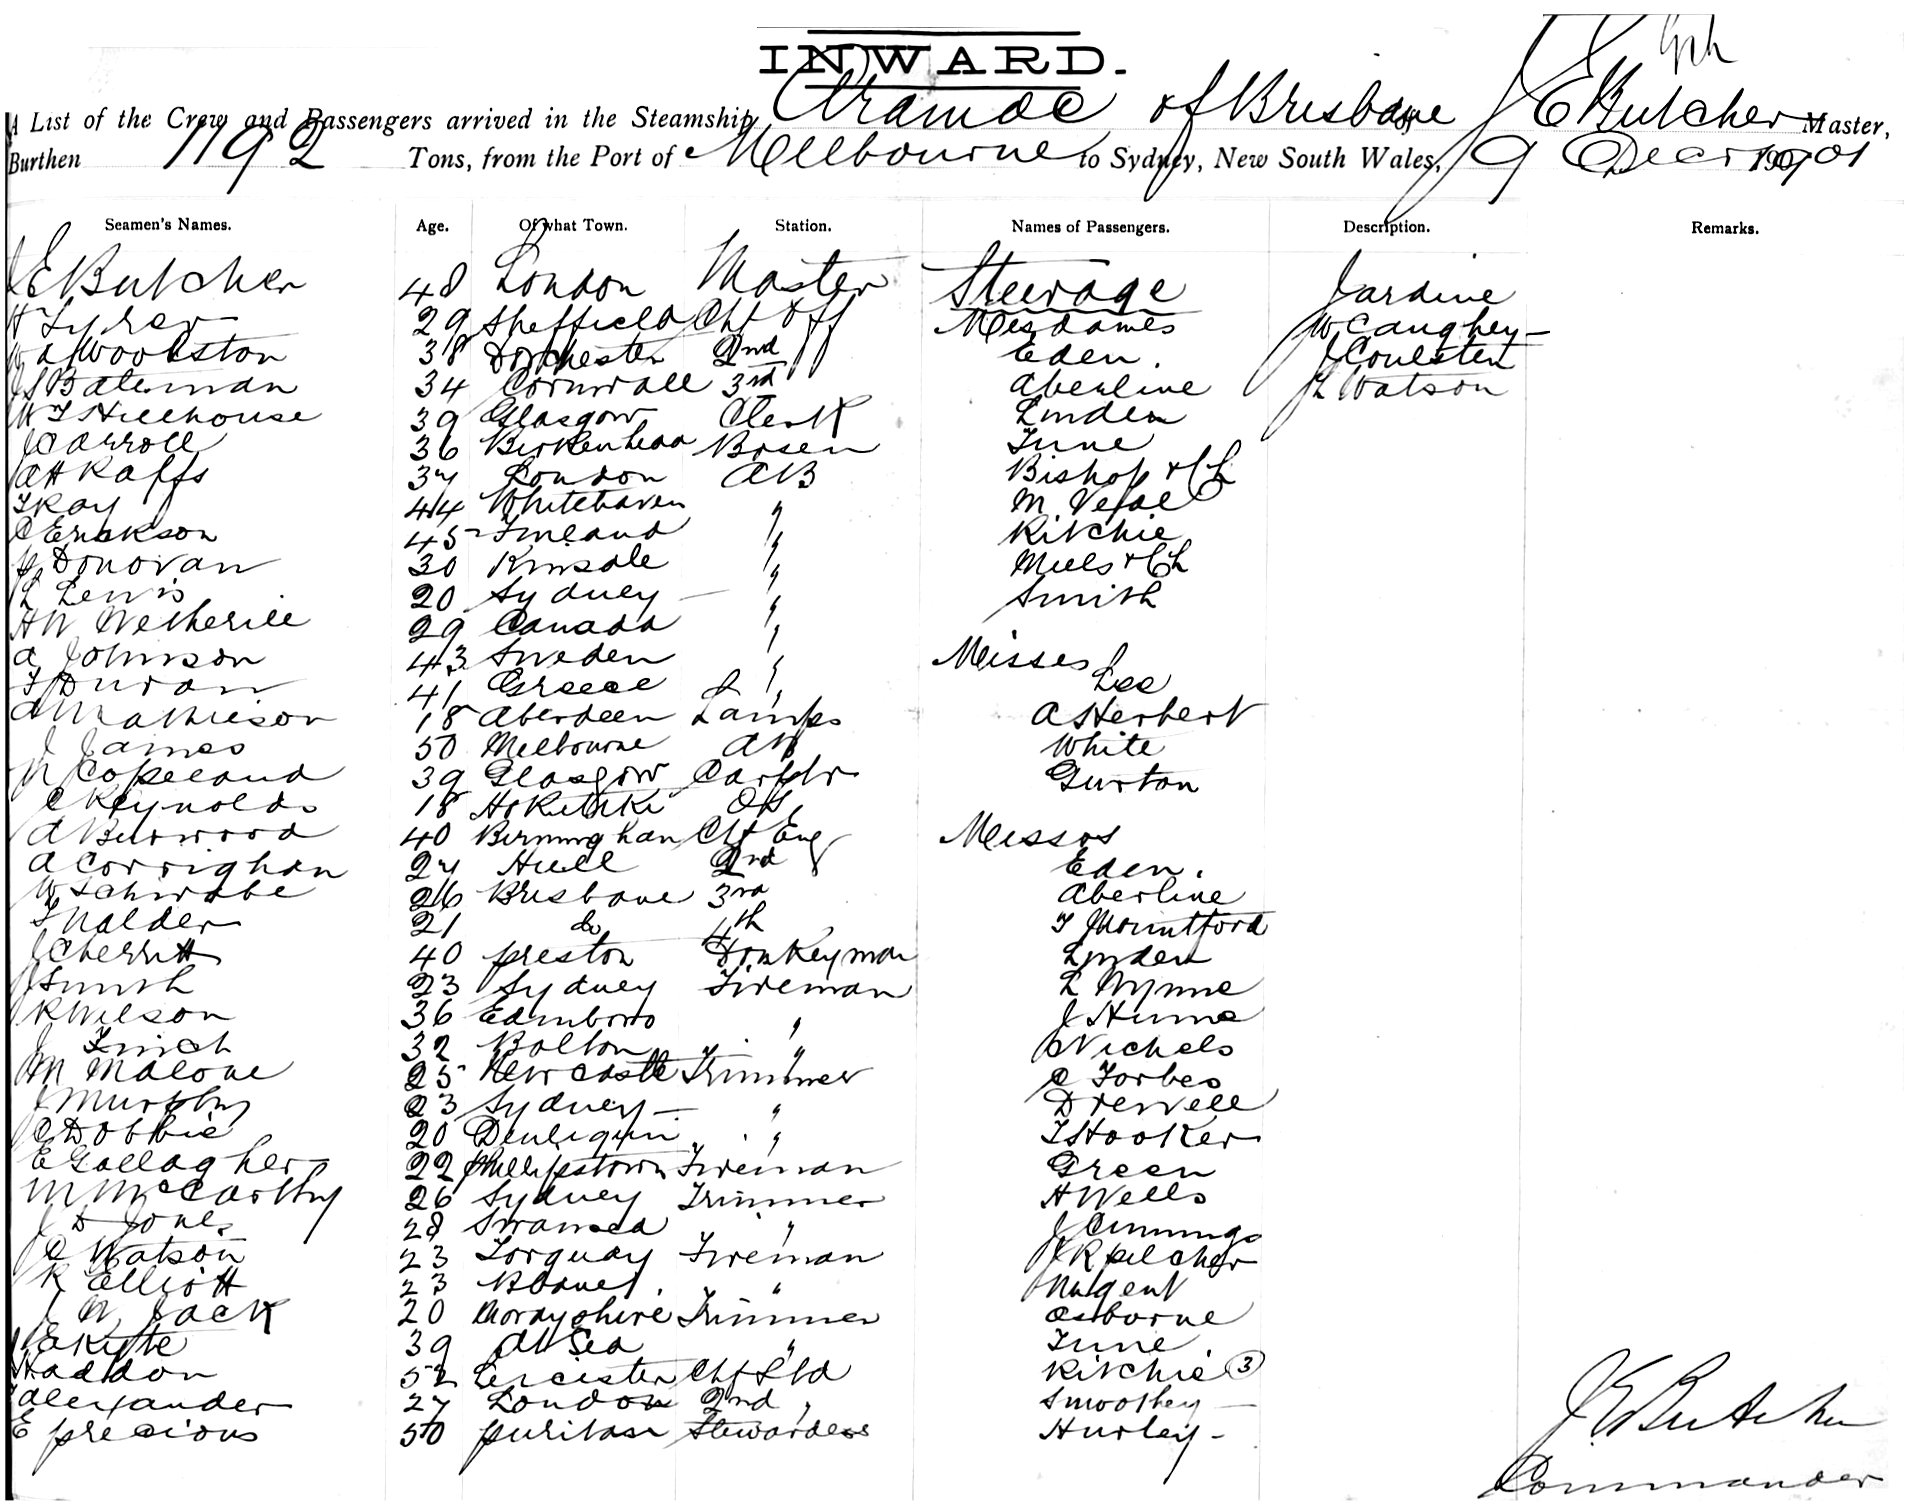 INWARD.
A List of the Crew and Passengers arrived in the Steamship Aramac of Brisbane J E Butcher Master,
Burthen 1192 Tons, from the Port of Melbourne to Sydney, New South Wales, 9 Decr 1901
Seamen's Names. Age. Of what Town. Station. Names of Passengers. Description. Remarks.
J E Butcher 48 London Master Steerage Jardine
H Tyrer 29 Sheffield Chf Off Mesdames McCaughey
W A Woolston 38 Dorchester 2nd " Eden. J Coulsten
J S Bateman 34 Cornwall 3rd " Aberline L Watson
W T Hillhouse 39 Glasgow Clerk Linden
J Carroll 36 Birkenhead Bosen June
A H Raffs 37 London AB Bishop & Ch
T Kay 44 Whitehaven " M.
C Erickson 45 Finland " Ritchie
J Donovan 30 Kinsale " Mills & Ch
L Lewis 20 Sydney " Smith
H W Wetherill 29 Canada "
A Johnson 43 Sweden " Misses
T Duran 41 Greece " Lee
A Mathieson 18 Aberdeen Lamps A Herbert
J James 50 Melbourne AB White
W Copeland 39 Glasgow Carptr Gurton
C Reynolds 18 Hokitika OS
A Burwood 40 Birmingham Chf Eng Messrs
A Corrighan 27 Hull 2nd Eden.
W Schwabe 26 Brisbane 3rd Aberline
T Nalder 21 do 4th T Mountford
J Cherritt 40 Preston Donkeyman Lynden
J Smith 23 Sydney Fireman L Wynne
R Wilson 36 Edinboro " J Hume
J Finch 32 Bolton " Nichols
M Malone 25 Newcastle Trimmer C Forbes
J Murphy 23 Sydney " Drewell
C Dobbie 20 Deniliquin " T Hooker
E Gallagher 22 Phillipstown Fireman Green
M McCarthy 26 Sydney Trimmer H Wells
J D Jones 28 Swansea " J Cummings
C Watson 23 Torquay Fireman J R Pilcher
R Elliott 23 " Nugent
J W Jack 20 Morayshire Trimmer Osborne
39 At Sea " June
Haddon 52 Leicester Chf Std Ritchie (3)
Alexander 27 London 2nd " Smoothey
E Precious 50 Puritan Stewardess Hurley
J E Butcher
Commander